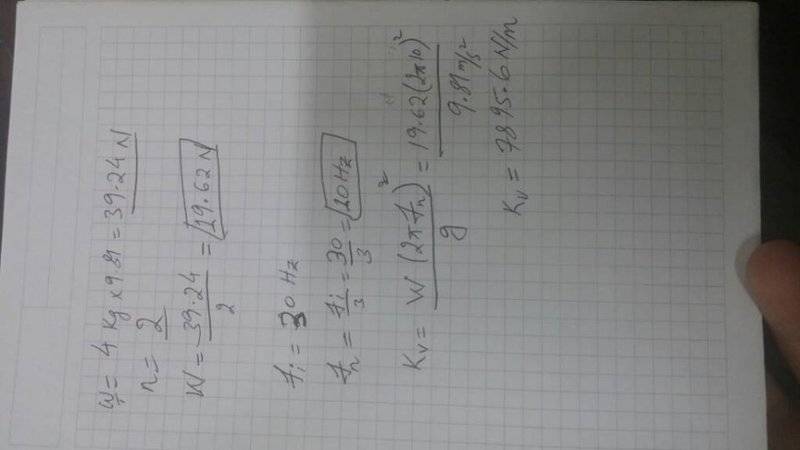 W_T = 4 Kg x 9.81 = 39.24 N
n = 2
W = 39.24 / 2 = 19.62 N
f_i = 30 Hz
f_n = f_i / 3 = 30 / 3 = 10 Hz
K_v = W (2π f_n)² / g = 19.62 (2π10)² / 9.81 m/s²
K_v = 7895.6 N/m